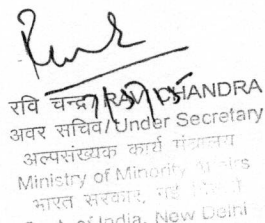 रवि चन्द्रा/RAVI CHANDRA
अवर सचिव/Under Secretary
अल्पसंख्यक कार्य मंत्रालय
Ministry of Minority Affairs
भारत सरकार, नई दिल्ली
of India, New Delhi